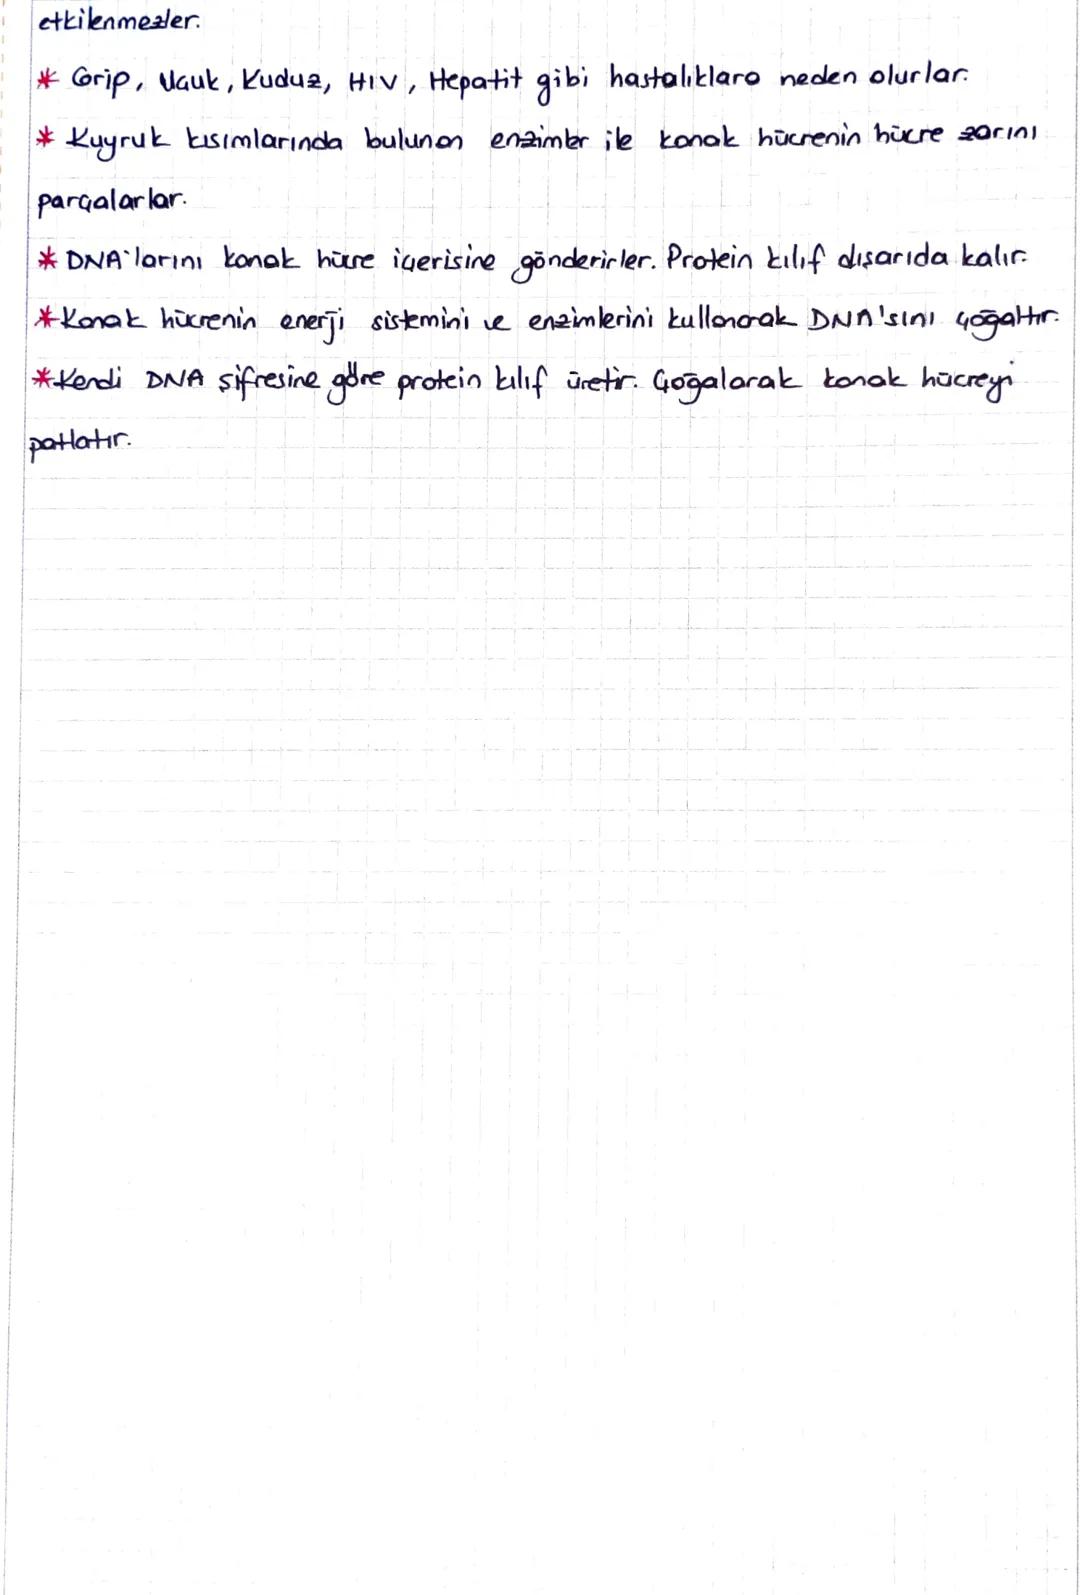 etkilenmezler.
* Grip, Uçuk, Kuduz, HIV, Hepatit gibi hastalıklara neden olurlar.
* Kuyruk kısımlarında bulunan enzimler ile konak hücrenin hücre zarını
parçalarlar.
* DNA'larını konak hücre içerisine gönderirler. Protein kılıf dışarıda kalır.
* Konak hücrenin enerji sistemini ve enzimlerini kullanarak DNA'sını çoğaltır.
* Kendi DNA şifresine göre protein kılıf üretir. Çoğalarak konak hücreyi
patlatır.